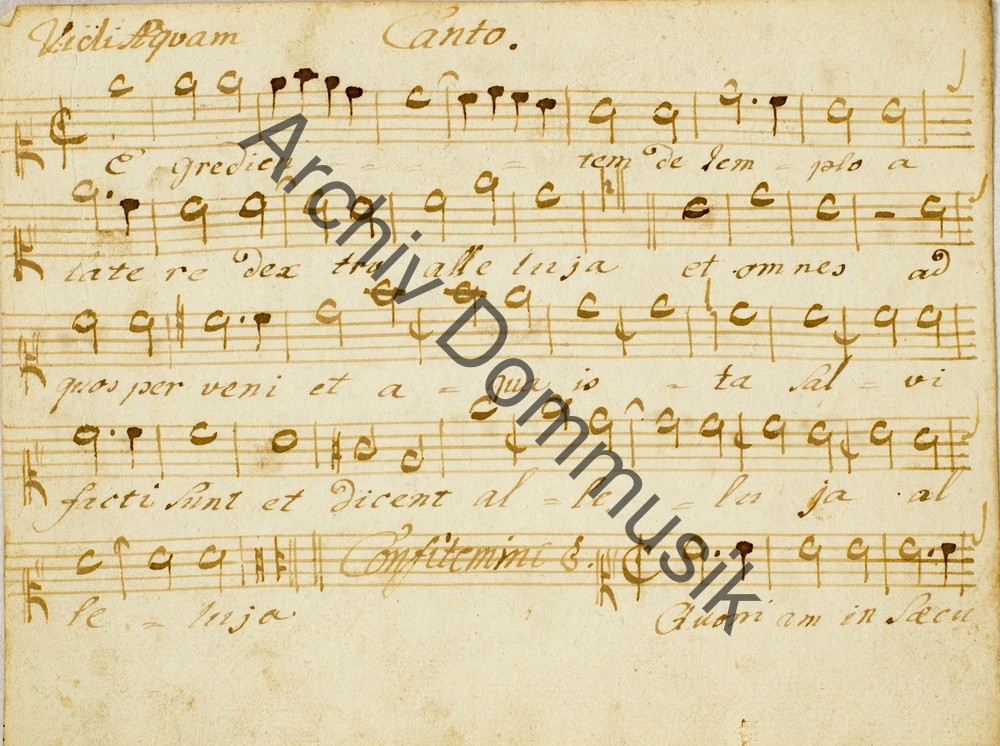 Vidi Aquam Canto.
E gredien - - - tem de tem - plo a
late re dex tro alle luja et omnes ad
quos per veni et a - qua is - ta sal - vi
facti sunt et dicent al - le - lu ja al
le - luja Confitemini Quoni am in sæcu
Archiv Dommusik